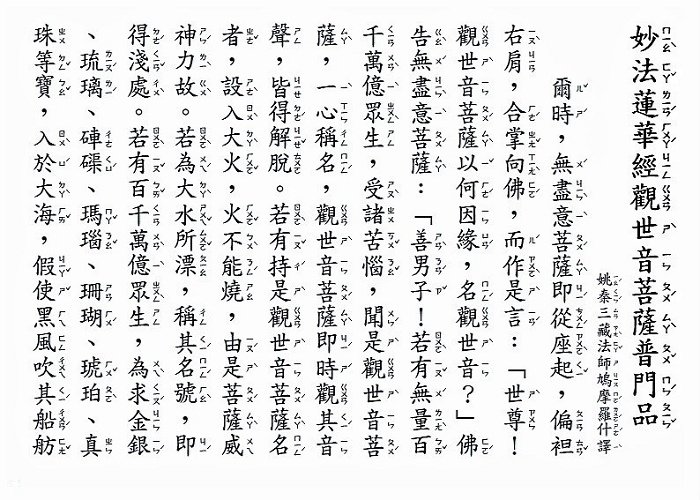 妙法蓮華經觀世音菩薩普門品
姚秦三藏法師鳩摩羅什譯
爾時，無盡意菩薩即從座起，偏袒
右肩，合掌向佛，而作是言：「世尊！
觀世音菩薩以何因緣，名觀世音？」佛
告無盡意菩薩：「善男子！若有無量百
千萬億眾生，受諸苦惱，聞是觀世音菩
薩，一心稱名，觀世音菩薩即時觀其音
聲，皆得解脫。若有持是觀世音菩薩名
者，設入大火，火不能燒，由是菩薩威
神力故。若為大水所漂，稱其名號，即
得淺處。若有百千萬億眾生，為求金銀
、琉璃、硨磲、瑪瑙、珊瑚、琥珀、真
珠等寶，入於大海，假使黑風吹其船舫